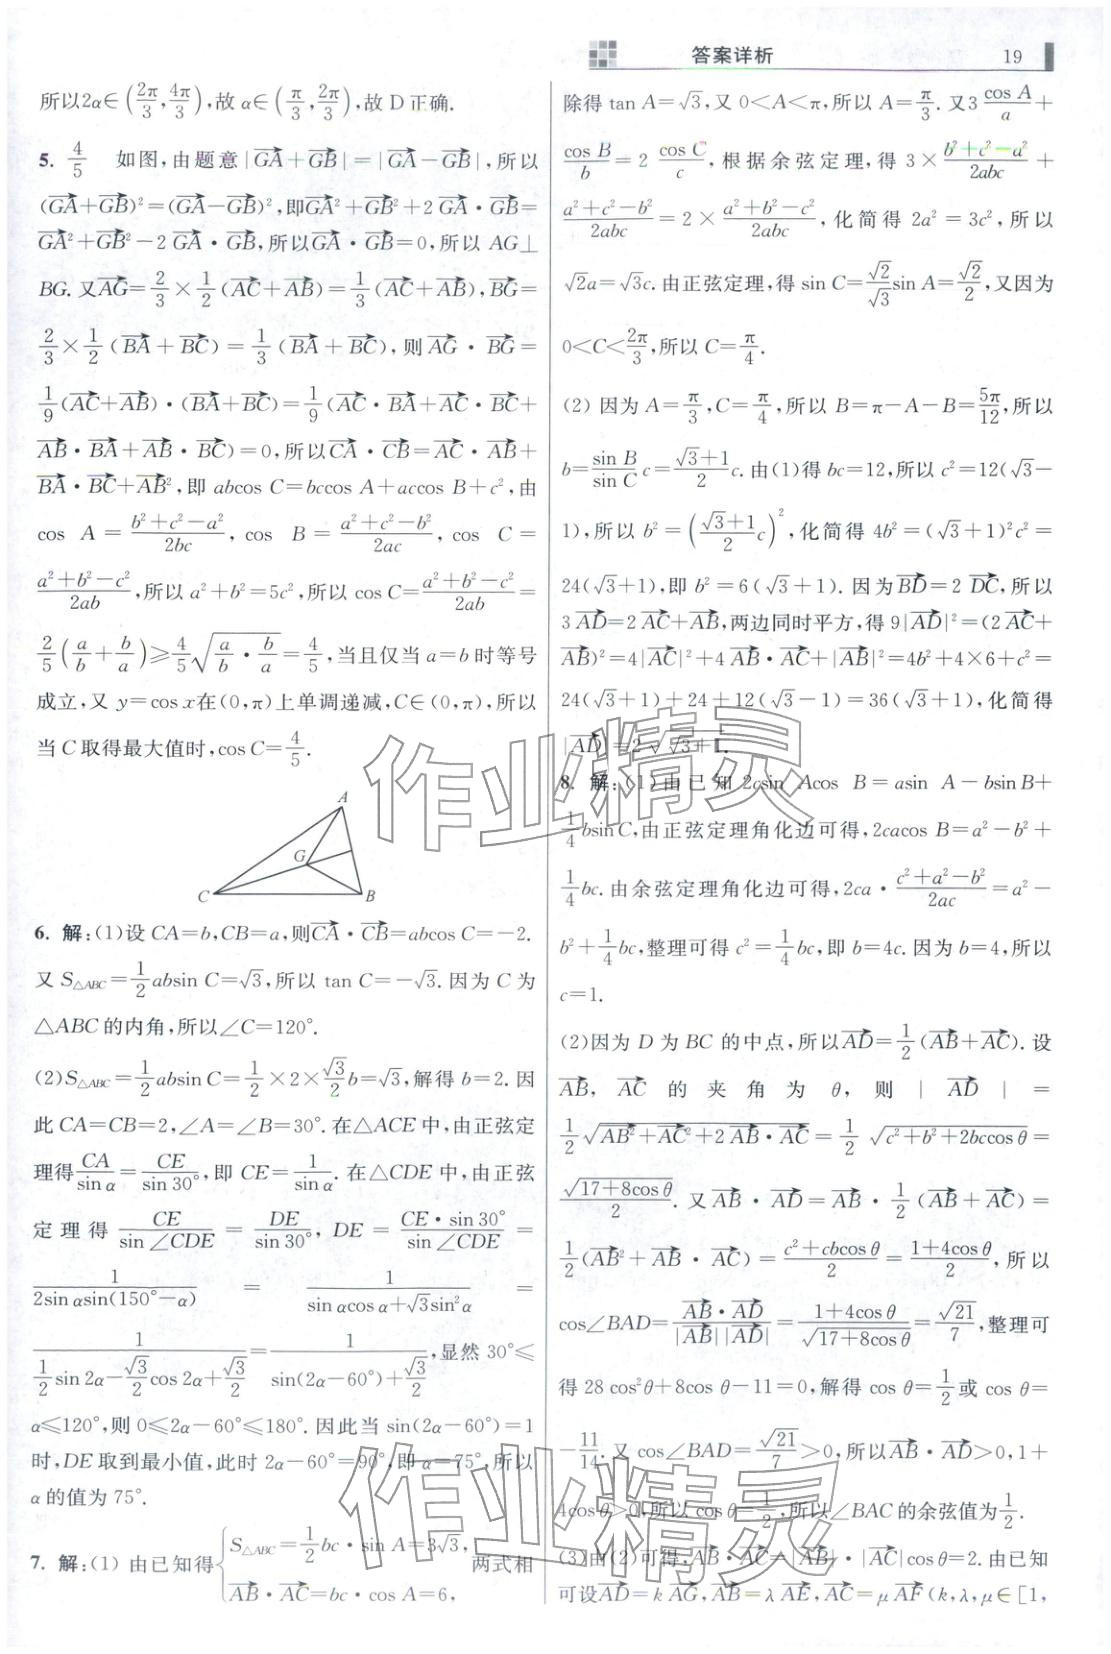 答案详析 19
所以2α∈(2π/3,4π/3),故 α∈(π/3,2π/3),故 D 正确.
5. 4/5 如图,由题意|GA→+GB→|=|GA→-GB→|,所以
(GA→+GB→)²=(GA→-GB→)²,即GA→²+GB→²+2 GA→·GB→=
GA→²+GB→²-2 GA→·GB→,所以GA→·GB→=0,所以 AG⊥
BG.又AG→=2/3×1/2(AC→+AB→)=1/3(AC→+AB→),BG→=
2/3×1/2(BA→+BC→)=1/3(BA→+BC→),则AG→·BG→=
1/9(AC→+AB→)·(BA→+BC→)=1/9(AC→·BA→+AC→·BC→+
AB→·BA→+AB→·BC→)=0,所以CA→·CB→=AC→·AB→+
BA→·BC→+AB→²,即 abcos C=bccos A+accos B+c²,由
cos A=(b²+c²-a²)/2bc, cos B=(a²+c²-b²)/2ac, cos C=
(a²+b²-c²)/2ab,所以 a²+b²=5c²,所以 cos C=(a²+b²-c²)/2ab=
2/5(a/b+b/a)≥4/5√(a/b·b/a)=4/5,当且仅当 a=b 时等号
成立,又 y=cos x在(0,π)上单调递减,C∈(0,π),所以
当 C 取得最大值时,cos C=4/5.
A
G
C
B
6. 解:(1)设 CA=b,CB=a,则CA→·CB→=abcos C=-2.
又 S△ABC=1/2absin C=√3,所以 tan C=-√3.因为 C 为
△ABC 的内角,所以∠C=120°.
(2)S△ABC=1/2absin C=1/2×2×√3/2b=√3,解得 b=2.因
此 CA=CB=2,∠A=∠B=30°.在△ACE 中,由正弦定
理得CA/sin α=CE/sin 30°,即 CE=1/sin α.在△CDE 中,由正弦
定理得 CE/sin∠CDE=DE/sin 30°, DE=CE·sin 30°/sin∠CDE=
1/2sin αsin(150°-α)=1/(sin αcos α+√3sin²α)=
1/(1/2sin 2α-√3/2cos 2α+√3/2)=1/(sin(2α-60°)+√3/2),显然 30°≤
α≤120°,则 0≤2α-60°≤180°.因此当 sin(2α-60°)=1
时,DE 取到最小值,此时 2α-60°=90°,即 α=75°,所以
α 的值为 75°.
7. 解:(1) 由已知得{S△ABC=1/2bc·sin A=3√3, AB→·AC→=bc·cos A=6, 两式相
除得 tan A=√3,又 0<A<π,所以 A=π/3.又3 cos A/a+
cos B/b=2 cos C/c,根据余弦定理,得 3×(b²+c²-a²)/2abc+
(a²+c²-b²)/2abc=2×(a²+b²-c²)/2abc,化简得 2a²=3c²,所以
√2a=√3c.由正弦定理,得 sin C=√2/√3sin A=√2/2,又因为
0<C<2π/3,所以 C=π/4.
(2) 因为 A=π/3,C=π/4,所以 B=π-A-B=5π/12,所以
b=sin B/sin C c=(√3+1)/2 c.由(1)得 bc=12,所以 c²=12(√3-
1),所以 b²=((√3+1)/2 c)²,化简得 4b²=(√3+1)²c²=
24(√3+1),即 b²=6(√3+1).因为BD→=2 DC→,所以
3 AD→=2 AC→+AB→,两边同时平方,得 9|AD→|²=(2 AC→+
AB→)²=4|AC→|²+4 AB→·AC→+|AB→|²=4b²+4×6+c²=
24(√3+1)+24+12(√3-1)=36(√3+1),化简得
|AD→|=2√(√3+1).
8. 解:(1)由已知 2csin Acos B=asin A-bsin B+
1/4bsin C,由正弦定理角化边可得,2cacos B=a²-b²+
1/4bc.由余弦定理角化边可得,2ca·(c²+a²-b²)/2ac=a²-
b²+1/4bc,整理可得 c²=1/4bc,即 b=4c.因为 b=4,所以
c=1.
(2)因为 D 为 BC 的中点,所以AD→=1/2(AB→+AC→).设
AB→,AC→的夹角为 θ,则|AD→|=
1/2√(AB→²+AC→²+2 AB→·AC→)=1/2√(c²+b²+2bccos θ)=
√(17+8cos θ)/2.又AB→·AD→=AB→·1/2(AB→+AC→)=
1/2(AB→²+AB→·AC→)=(c²+cbcos θ)/2=(1+4cos θ)/2,所以
cos∠BAD=AB→·AD→/|AB→||AD→|=(1+4cos θ)/√(17+8cos θ)=√21/7,整理可
得 28 cos²θ+8cos θ-11=0,解得 cos θ=1/2或 cos θ=
-11/14.又 cos∠BAD=√21/7>0,所以AB→·AD→>0,1+
4cos θ>0,所以 cos θ=1/2,所以∠BAC的余弦值为1/2.
(3)由(2)可得,AB→·AC→=|AB→|·|AC→|cos θ=2.由已知
可设AD→=k AG→,AB→=λ AE→,AC→=μ AF→(k,λ,μ∈[1,
作业精灵
作业精灵